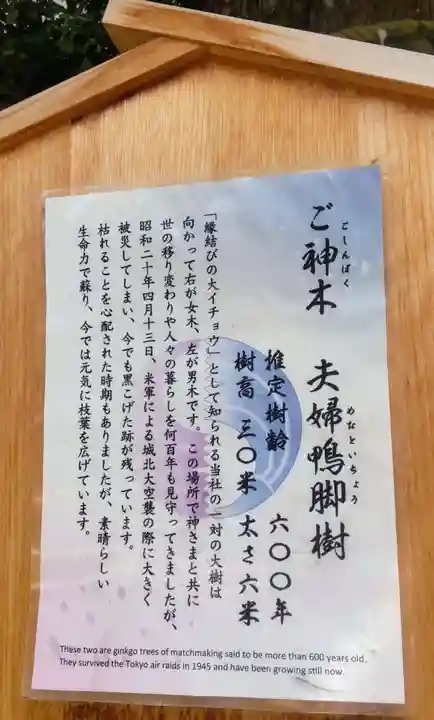 ご神木 夫婦鴨脚樹
ごしんぼく めおといちょう
推定樹齢 六〇〇年
樹高 三〇米 太さ六米
「縁結びの大イチョウ」として知られる当社の一対の大樹は
向かって右が女木、左が男木です。この場所で神さまと共に
世の移り変わりや人々の暮らしを何百年も見守ってきましたが、
昭和二十年四月十三日、米軍による城北大空襲の際に大きく
被災してしまい、今でも黒こげた跡が残っています。
枯れることを心配された時期もありましたが、素晴らしい
生命力で蘇り、今では元気に枝葉を広げています。
These two are ginkgo trees of matchmaking said to be more than 600 years old.
They survived the Tokyo air raids in 1945 and have been growing still now.